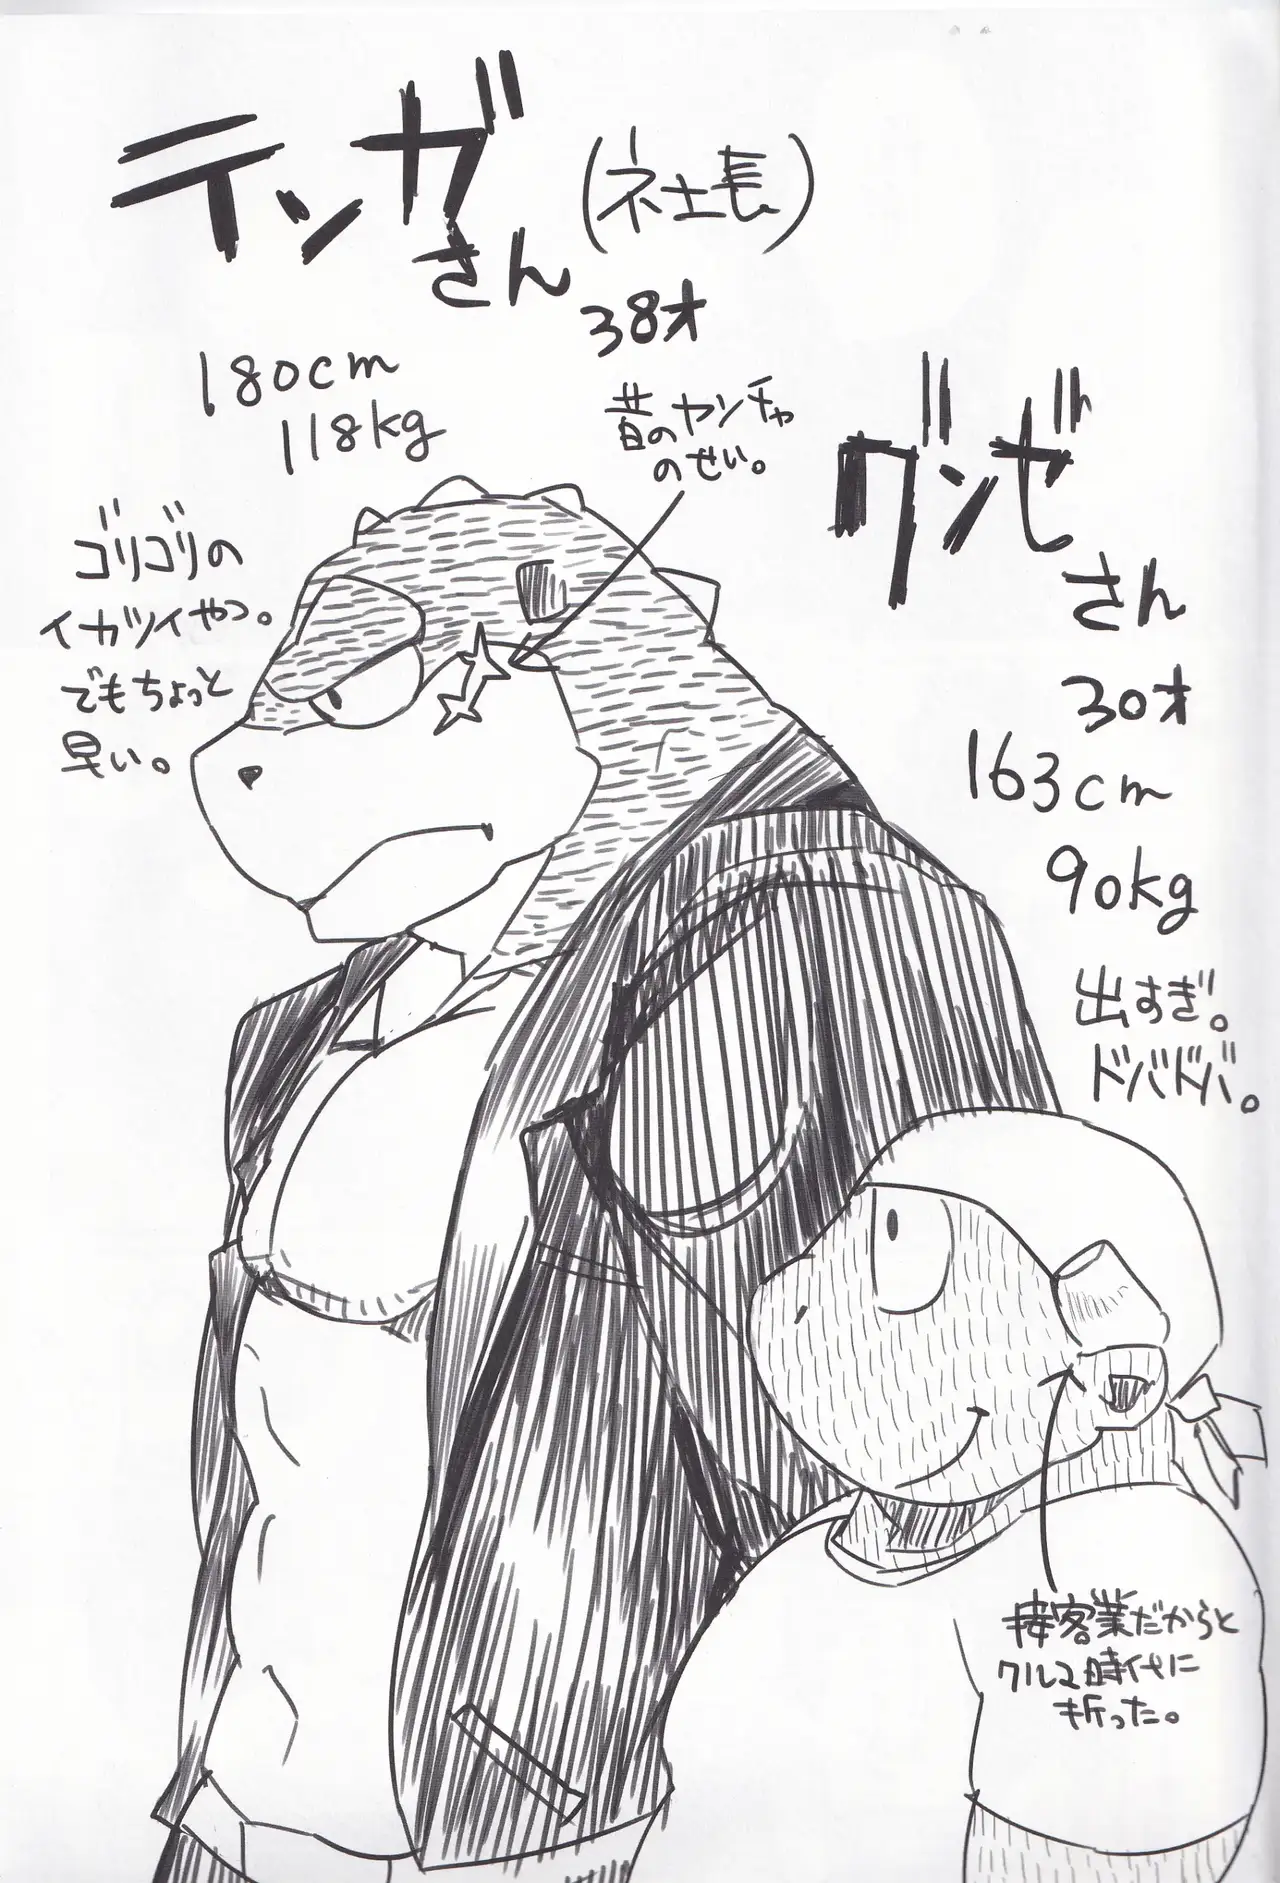 テンガ
さん
(社長)
38才
180cm
118kg
昔のヤンチャ
のせい。
ゴリゴリの
イカツイやつ。
でもちょっと
早い。
グンゼ
さん
30才
163cm
90kg
出すぎ。
ドバドバ。
接客業だからと
クルマ時代に
折った。